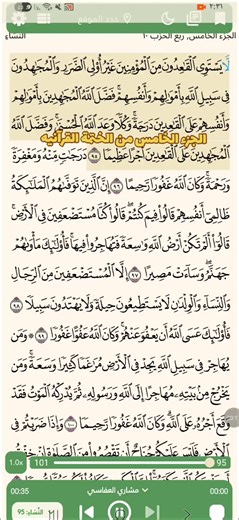 ٢:٣١
عدد المواقع
الجزء الخامس, ربع الحزب ١٠
النساء
لَّا يَسْتَوِى الْقَٰعِدُونَ مِنَ الْمُؤْمِنِينَ غَيْرُ أُو۟لِى الضَّرَرِ وَالْمُجَٰهِدُونَ
فِى سَبِيلِ اللَّهِ بِأَمْوَٰلِهِمْ وَأَنفُسِهِمْ فَضَّلَ اللَّهُ الْمُجَٰهِدِينَ بِأَمْوَٰلِهِمْ
وَأَنفُسِهِمْ عَلَى الْقَٰعِدِينَ دَرَجَةً وَكُلًّا وَعَدَ اللَّهُ الْحُسْنَىٰ وَفَضَّلَ اللَّهُ
الجزء الخامس من الختمة القرآنيه
الْمُجَٰهِدِينَ عَلَى الْقَٰعِدِينَ أَجْرًا عَظِيمًا ٩٥ دَرَجَٰتٍ مِّنْهُ وَمَغْفِرَةً
وَرَحْمَةً وَكَانَ اللَّهُ غَفُورًا رَّحِيمًا ٩٦ إِنَّ الَّذِينَ تَوَفَّىٰهُمُ الْمَلَٰٓئِكَةُ
ظَالِمِىٓ أَنفُسِهِمْ قَالُوا۟ فِيمَ كُنتُمْ قَالُوا۟ كُنَّا مُسْتَضْعَفِينَ فِى الْأَرْضِ
قَالُوٓا۟ أَلَمْ تَكُنْ أَرْضُ اللَّهِ وَٰسِعَةً فَتُهَاجِرُوا۟ فِيهَا فَأُو۟لَٰٓئِكَ مَأْوَىٰهُمْ
جَهَنَّمُ وَسَآءَتْ مَصِيرًا ٩٧ إِلَّا الْمُسْتَضْعَفِينَ مِنَ الرِّجَالِ
وَالنِّسَآءِ وَالْوِلْدَٰنِ لَا يَسْتَطِيعُونَ حِيلَةً وَلَا يَهْتَدُونَ سَبِيلًا ٩٨
فَأُو۟لَٰٓئِكَ عَسَى اللَّهُ أَن يَعْفُوَ عَنْهُمْ وَكَانَ اللَّهُ عَفُوًّا غَفُورًا ٩٩ وَمَن
يُهَاجِرْ فِى سَبِيلِ اللَّهِ يَجِدْ فِى الْأَرْضِ مُرَٰغَمًا كَثِيرًا وَسَعَةً وَمَن
يَخْرُجْ مِنۢ بَيْتِهِۦ مُهَاجِرًا إِلَى اللَّهِ وَرَسُولِهِۦ ثُمَّ يُدْرِكْهُ الْمَوْتُ فَقَدْ
وَقَعَ أَجْرُهُۥ عَلَى اللَّهِ وَكَانَ اللَّهُ غَفُورًا رَّحِيمًا ١٠٠ وَإِذَا ضَرَبْتُمْ فِى
الْأَرْضِ فَلَيْسَ عَلَيْكُمْ جُنَاحٌ أَن تَقْصُرُوا۟ مِنَ الصَّلَوٰةِ إِنْ خِفْتُمْ
1.0x 101 95
00:35 مشاري العفاسي 00:00
النساء: 95